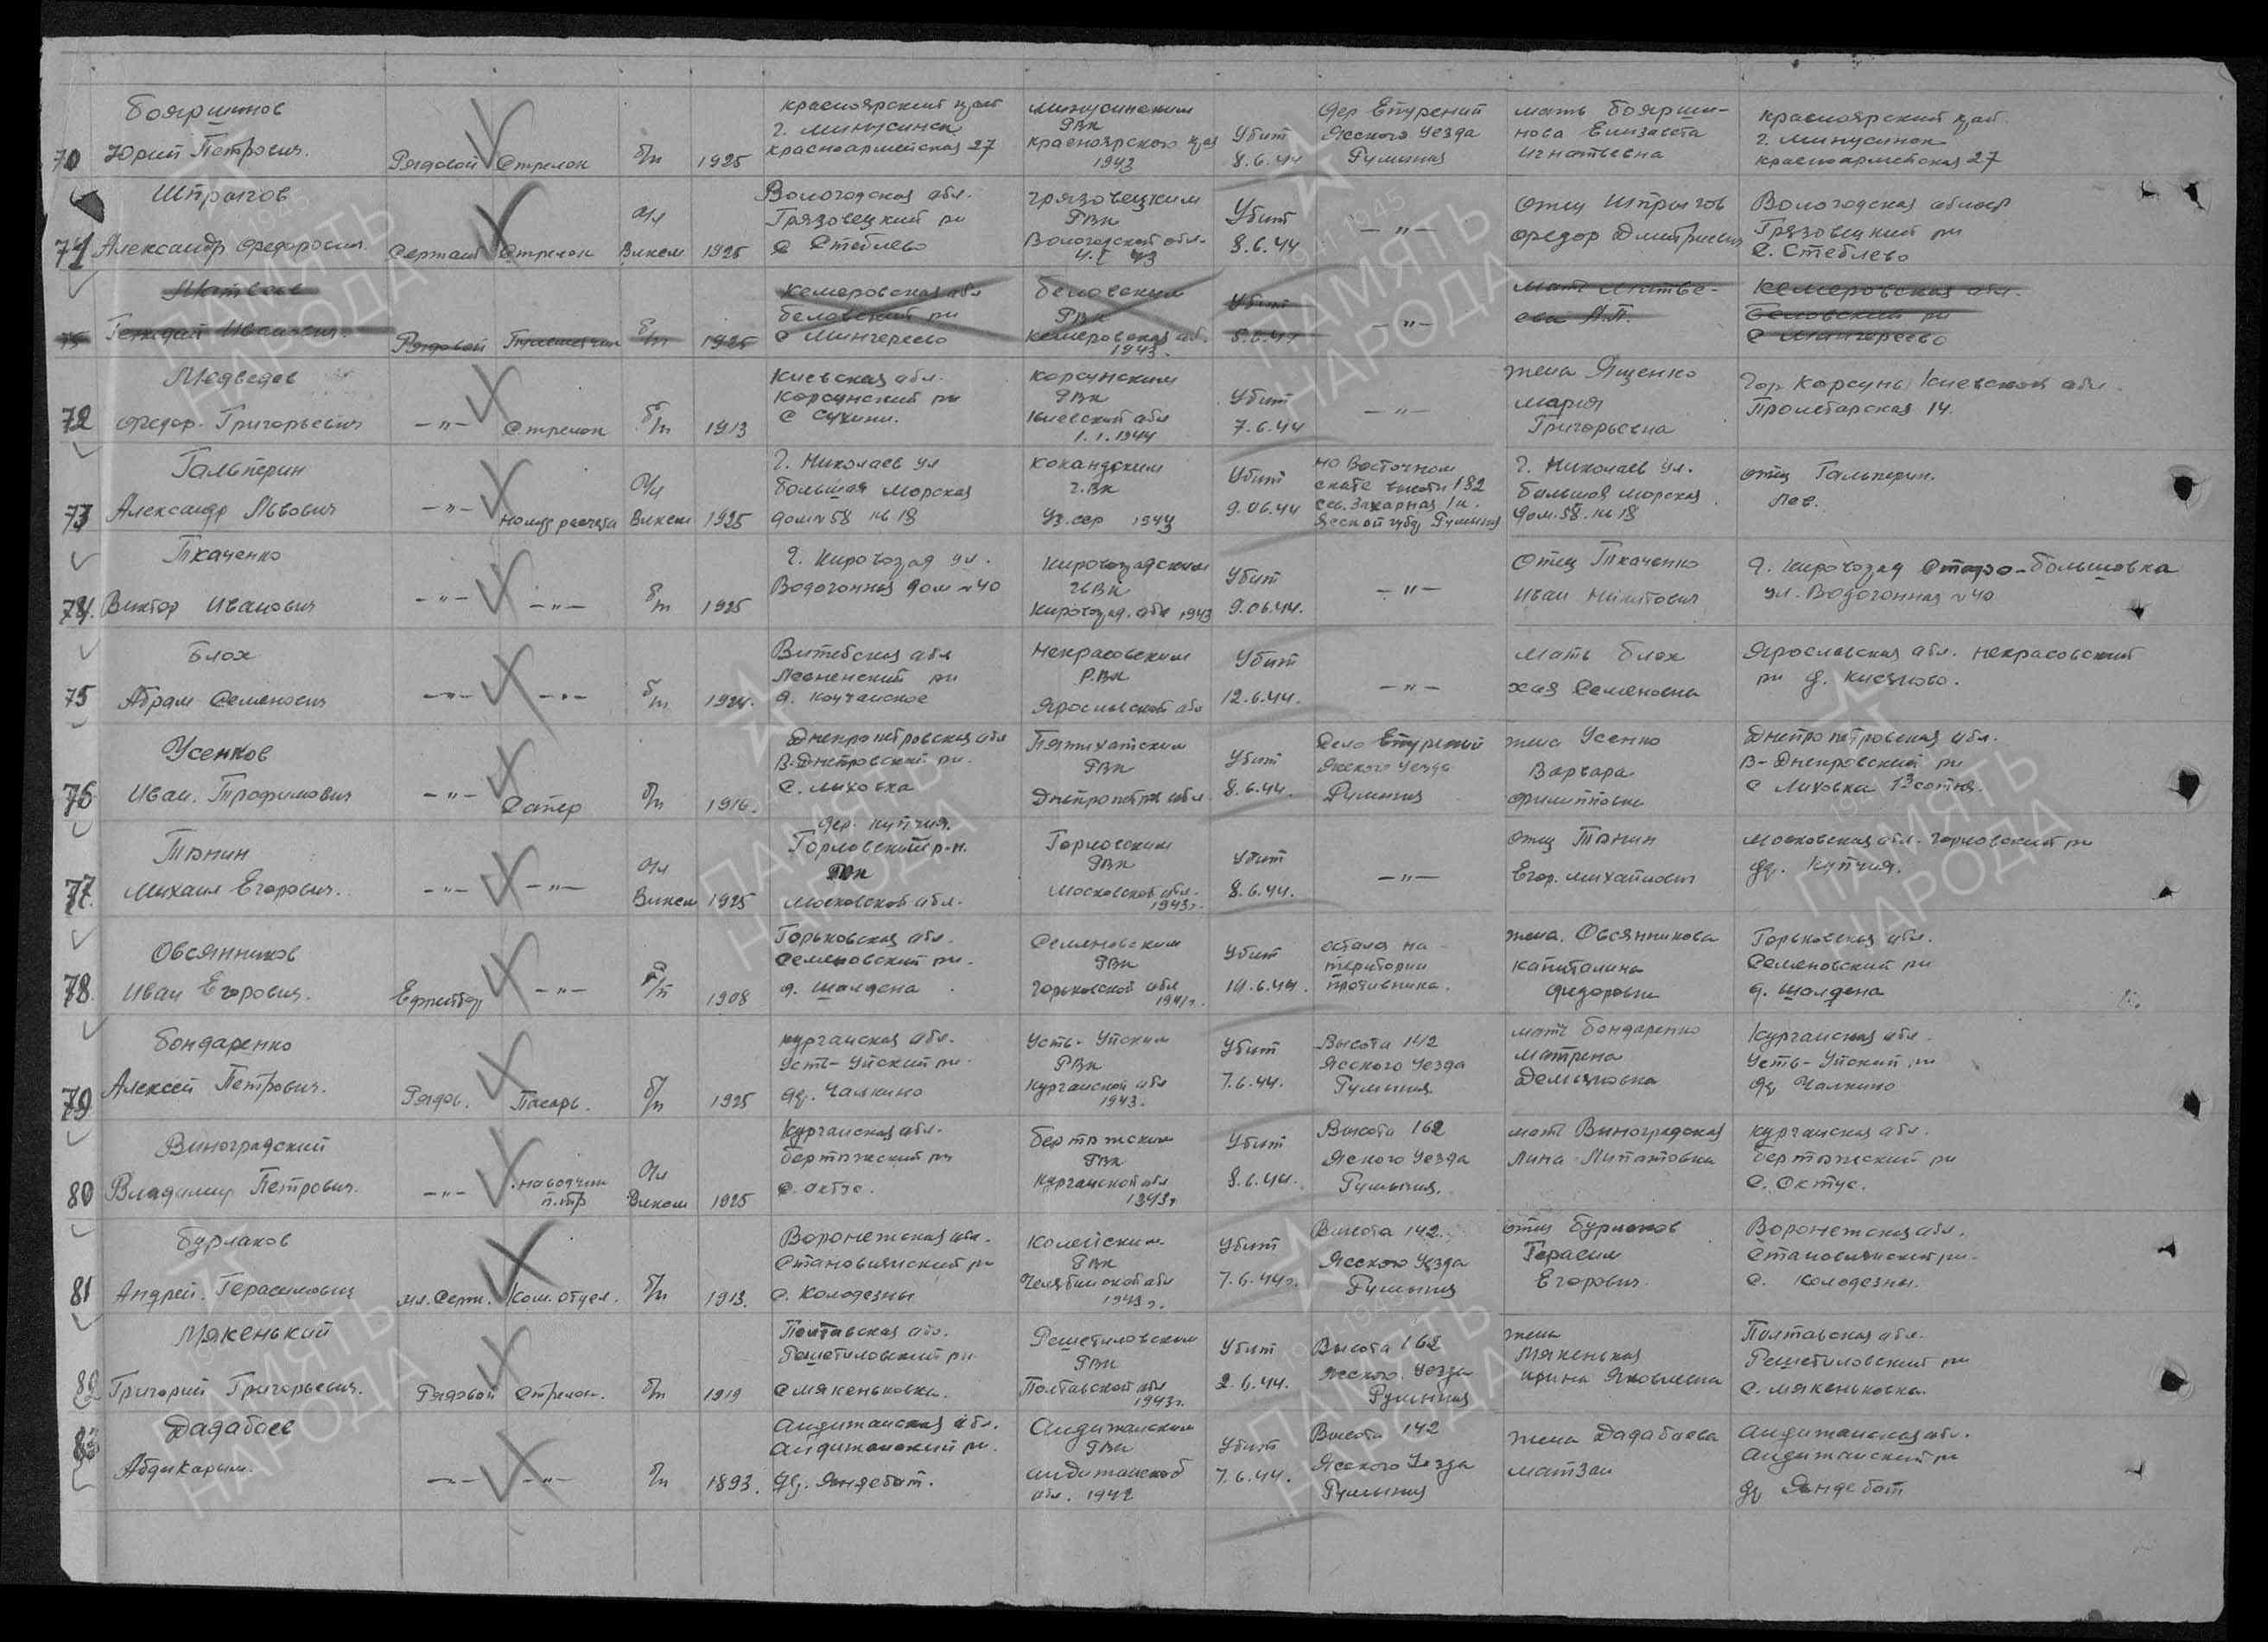 70 Бояршинов Юрий Петрович. Рядовой Стрелок б/п 1925
Красноярский край г. Минусинск Красноармейская 27
Минусинским РВК Красноярского края 1943
Убит 8.6.44
дер Епурений Ясского уезда Румыния
мать Боярши-нова Елизавета Игнатьевна
Красноярский край. г. Минусинск Красноармейская 27
71 Шпрыгов Александр Федорович Сержант Стрелок Чл Влксм 1925
Вологодская обл. Грязовецкий рн с Стеблево
Грязовецким РВК Вологодской обл. 43
Убит 8.6.44
— " —
отец Шпрыгов Федор Дмитриевич
Вологодская област Грязовецкий рн с. Стеблево
Матвеев Генадий Иванович. Рядовой б/п 1925
Кемеровская обл Беловский рн с Мингереево
Беловским РВК Кемеровская об. 1943.
Убит 8.6.44
— " —
мать Матве-ева А.П.
Кемеровская обл. Беловский рн с Мингереево
72 Медведев Федор Григорьевич — " — Стрелок б/п 1913
Киевская обл. Корсунский рн с Сухини.
Корсунским РВК Киевский обл 1.1.1944
Убит 7.6.44
— " —
жена Ященко Мария Григорьевна
Гор Корсунь Киевской обл. Пролетарская 14.
73 Гальперин Александр Львович — " — номер расчета Чл Влксм 1925
г. Николаев ул Большая Морская дом № 58 кв 18
Кокандским г.Вк Уз.сср 1943
Убит 9.06.44
на Восточном скате высоты 182 сев. Захарная 1к. Ясской Румыния
г. Николаев ул. Большая Морская дом.58. кв 18
отец Гальперин. Лев.
74. Ткаченко Виктор Иванович — " — — " — б/п 1925
г. Кировоград ул. Водогонная дом № 40
Кировоградским Кировогад. обл 1943
Убит 9.06.44.
— " —
отец Ткаченко Иван Никитович
г. Кировоград Старо-Большовка ул. Водогонная № 40
75 Блох Абрам Семенович — " — — " — б/п 1924.
Витебская обл Лезненский рн д. Коучанское
Некрасовским Р.Вк Ярославской обл
Убит 12.6.44.
— " —
мать Блох хая Семеновна
Ярославская обл. Некрасовский рн д.
76 Усенков Иван. Трофимович — " — Сапер б/п 1916.
Днепропетровская обл В-Днепровский рн. с. Лиховка
Пятихатским РВК Днепропетр обл.
Убит 8.6.44.
Село Епурений Ясского уезда Румыния
жена Усенко Варвара Филипповна
Днепропетровская обл. В-Днепровский рн с Лиховка 13 сотня.
77. Танин Михаил Егорович. — " — — " — Чл Влксм 1925
дер. Купчия. Горловский р-н. РВК Московской обл.
Горловским РВК Московской обл. 1943г.
Убит 8.6.44.
— " —
отец Танин Егор. Михайлович
Московская обл. Горловский рн др. Купчия.
78. Овсянников Иван Егорович. Ефрейтор — " — б/п 1908
Горьковская обл. Семеновский рн. д. Шалдена
Семеновским РВК Горьковской обл 1941г.
Убит 10.6.44.
остался на територии противника.
жена. Овсянникова Капиталина Федоровна
Горьковская обл. Семеновский рн д. Шалдена
79 Бондаренко Алексей Петрович. Рядов. Писарь. б/п 1925
Курганская обл. Усть-Уйский рн. др. Чалкино
Усть-Уйским РВК Курганской обл 1943.
Убит 7.6.44.
Высота 142 Ясского уезда Румыния
мать Бондаренко Матрена Демьяновна
Курганская обл. Усть-Уйский рн др Чалкино
80 Виноградский Владимир Петрович. — " — наводчик п.тр Чл Влксм 1925
Курганская обл. Бертюжский рн с. Октус.
Бертюжским РВК Курганской обл 1943г
Убит 8.6.44.
Высота 162 Яского уезда Румыния.
мать Виноградская Лина Липатовна
Курганская обл. Бертюжский рн с. Октус.
81 Бурлаков Андрей. Герасимович мл. Серж. Ком. отдел. б/п 1913.
Воронежская обл. Становлянский рн с. Колодезны
Копейским РВК Челябинской обл 1943г.
Убит 7.6.44г.
Высота 142. Ясского уезда Румыния
отец Бурлаков Герасим Егорович.
Воронежская обл. Становлянский рн. с. Колодезны.
82 Мякенький Григорий Григорьевич. Рядовой Стрелок. б/п 1919
Полтавская обл. Решетиловский рн с Мякеньковка.
Решетиловским РВК Полтавской обл 1943г.
Убит 2.6.44.
Высота 162 Ясского. уезда Румыния
жена Мякенькая Ирина Яковлевна
Полтавская обл. Решетиловский рн с. Мякеньковка.
83 Дадабаев Абдукарым. — " — — " — б/п 1893.
Андижанская обл. Андижанский рн. др. Яндебат.
Андижанским РВК Андижанской обл. 1942
Убит 7.6.44.
Высота 142 Ясского уезда Румыния
жена Дадабаева Матзаи
Андижанская обл. Андижанский рн др Яндебат
ПАМЯТЬ НАРОДА
1941 1945